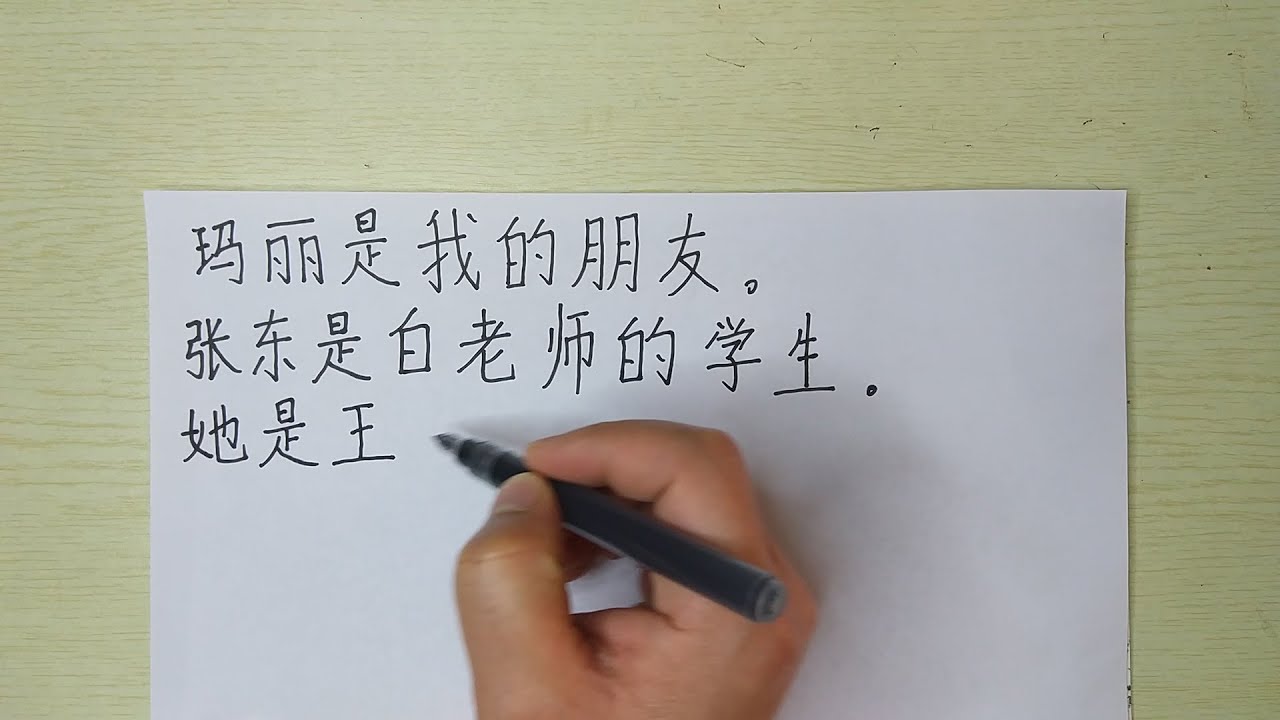 玛丽是我的朋友。
张东是白老师的学生。
她是王